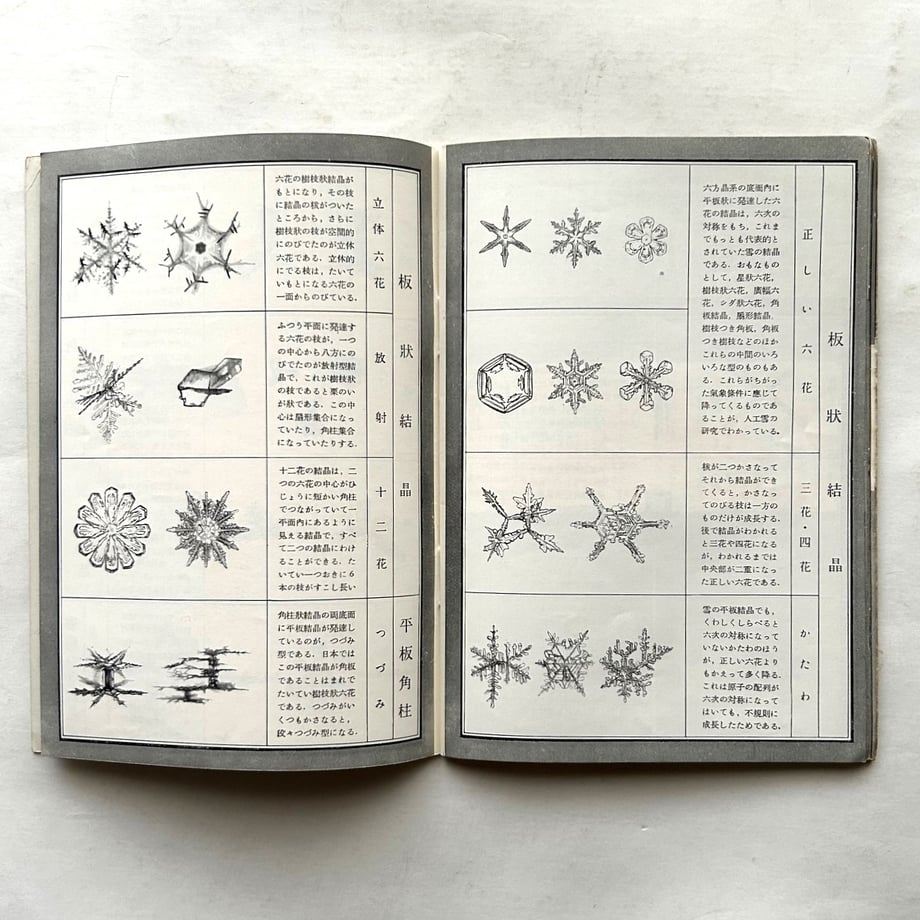 板狀結晶
正しい六花
六方晶系の底面內に
平板狀に発達した六
花の結晶は，六次の
対称をもち，これま
でもっとも代表的と
されていた雪の結晶
である．おもなもの
として，星狀六花，
樹枝狀六花，廣幅六
花，シダ狀六花，角
板結晶，扇形結晶，
樹枝つき角板，角板
つき樹枝などのほか
これらの中間のいろ
いろな型のものもあ
る．これらがちがっ
た氣象條件に應じて
降ってくるものであ
ることが，人工雪の
研究でわかっている．
三花・四花
核が二つかさなって
それから結晶ができ
てくると，かさなっ
てのびる枝は一方の
ものだけが成長する．
後で結晶がわかれる
と三花や四花になる
が，わかれるまでは
中央部が二重になっ
た正しい六花である．
かたわ
雪の平板結晶でも，
くわしくしらべると
六次の対称になって
いないかたわのほう
が，正しい六花より
もかえって多く降る．
これは原子の配列が
六次の対称になって
はいても，不規則に
成長したためである．
板狀結晶
立体六花
六花の樹枝狀結晶が
もとになり，その枝
に結晶の核がついた
ところから，さらに
樹枝狀の枝が空間的
にのびてたのが立体
六花である．立体的
にでる枝は，たいて
いもとになる六花の
一面からのびている．
放射
ふつう平面に発達す
る六花の枝が，一つ
の中心から八方にの
びてたのが放射型結
晶で，これが樹枝狀
の枝であると栗のい
が狀である．この中
心は扇形集合になっ
ていたり，角柱集合
になっていたりする．
十二花
十二花の結晶は，二
つの六花の中心がひ
じょうに短かい角柱
でつながっていて一
平面內にあるように
見える結晶で，すべ
て二つの結晶にわけ
ることができる．た
いてい一つおきに6
本の枝がすこし長い
平板角柱
つづみ
角柱狀結晶の両底面
に平板結晶が発達し
ているのが，つづみ
型である．日本では
この平板結晶が角板
であることはまれで
たいてい樹枝狀六花
である．つづみがい
くつもかさなると，
段々つづみ型になる．